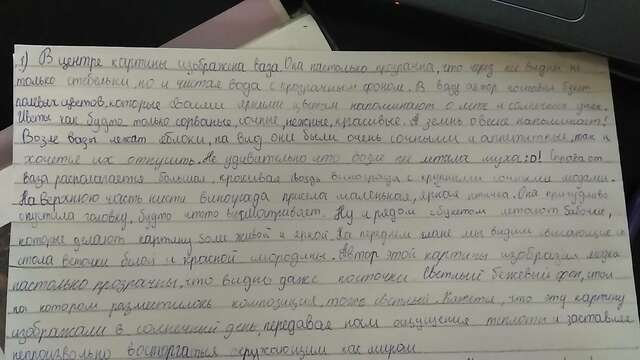 1) В центре картины изображена ваза. Она настолько прозрачна, что через неё видны не
только стебельки, но и чистая вода с прозрачным фоном. В вазу автор поставил букет
полевых цветов, которые своими яркими цветами напоминают о лете и солнечном дне.
Цветы как будто только сорваные, сочные, нежные, красивые.
Возле вазы лежат яблоки, на вид они были очень сочными и аппетитные, так и
хочется их откусить. Не удивительно что возле них летала муха :о! Справа от
ваза располагается большая, красивая гроздь винограда с крупными сочными
На верхнюю часть кисти винограда присела маленькая, яркая птичка. Она причудливо
опустила головку, будто что-то высматривает. Ну и рядом с букетом летают бабочки,
которые делают картину более живой и яркой. На переднем плане мы видим свисающие со
стола веточки белой и красной смородины. Автор этой картины изобразил
настолько прозрачны, что видны даже косточки. Светлый бежевый фон, стол
на котором разместилась композиция, тоже светлый. Кажется, что эту картину
изображали в солнечный день, передавая нам ощущения теплоты и заставляя
непроизвольно восторгаться окружающим нас миром.